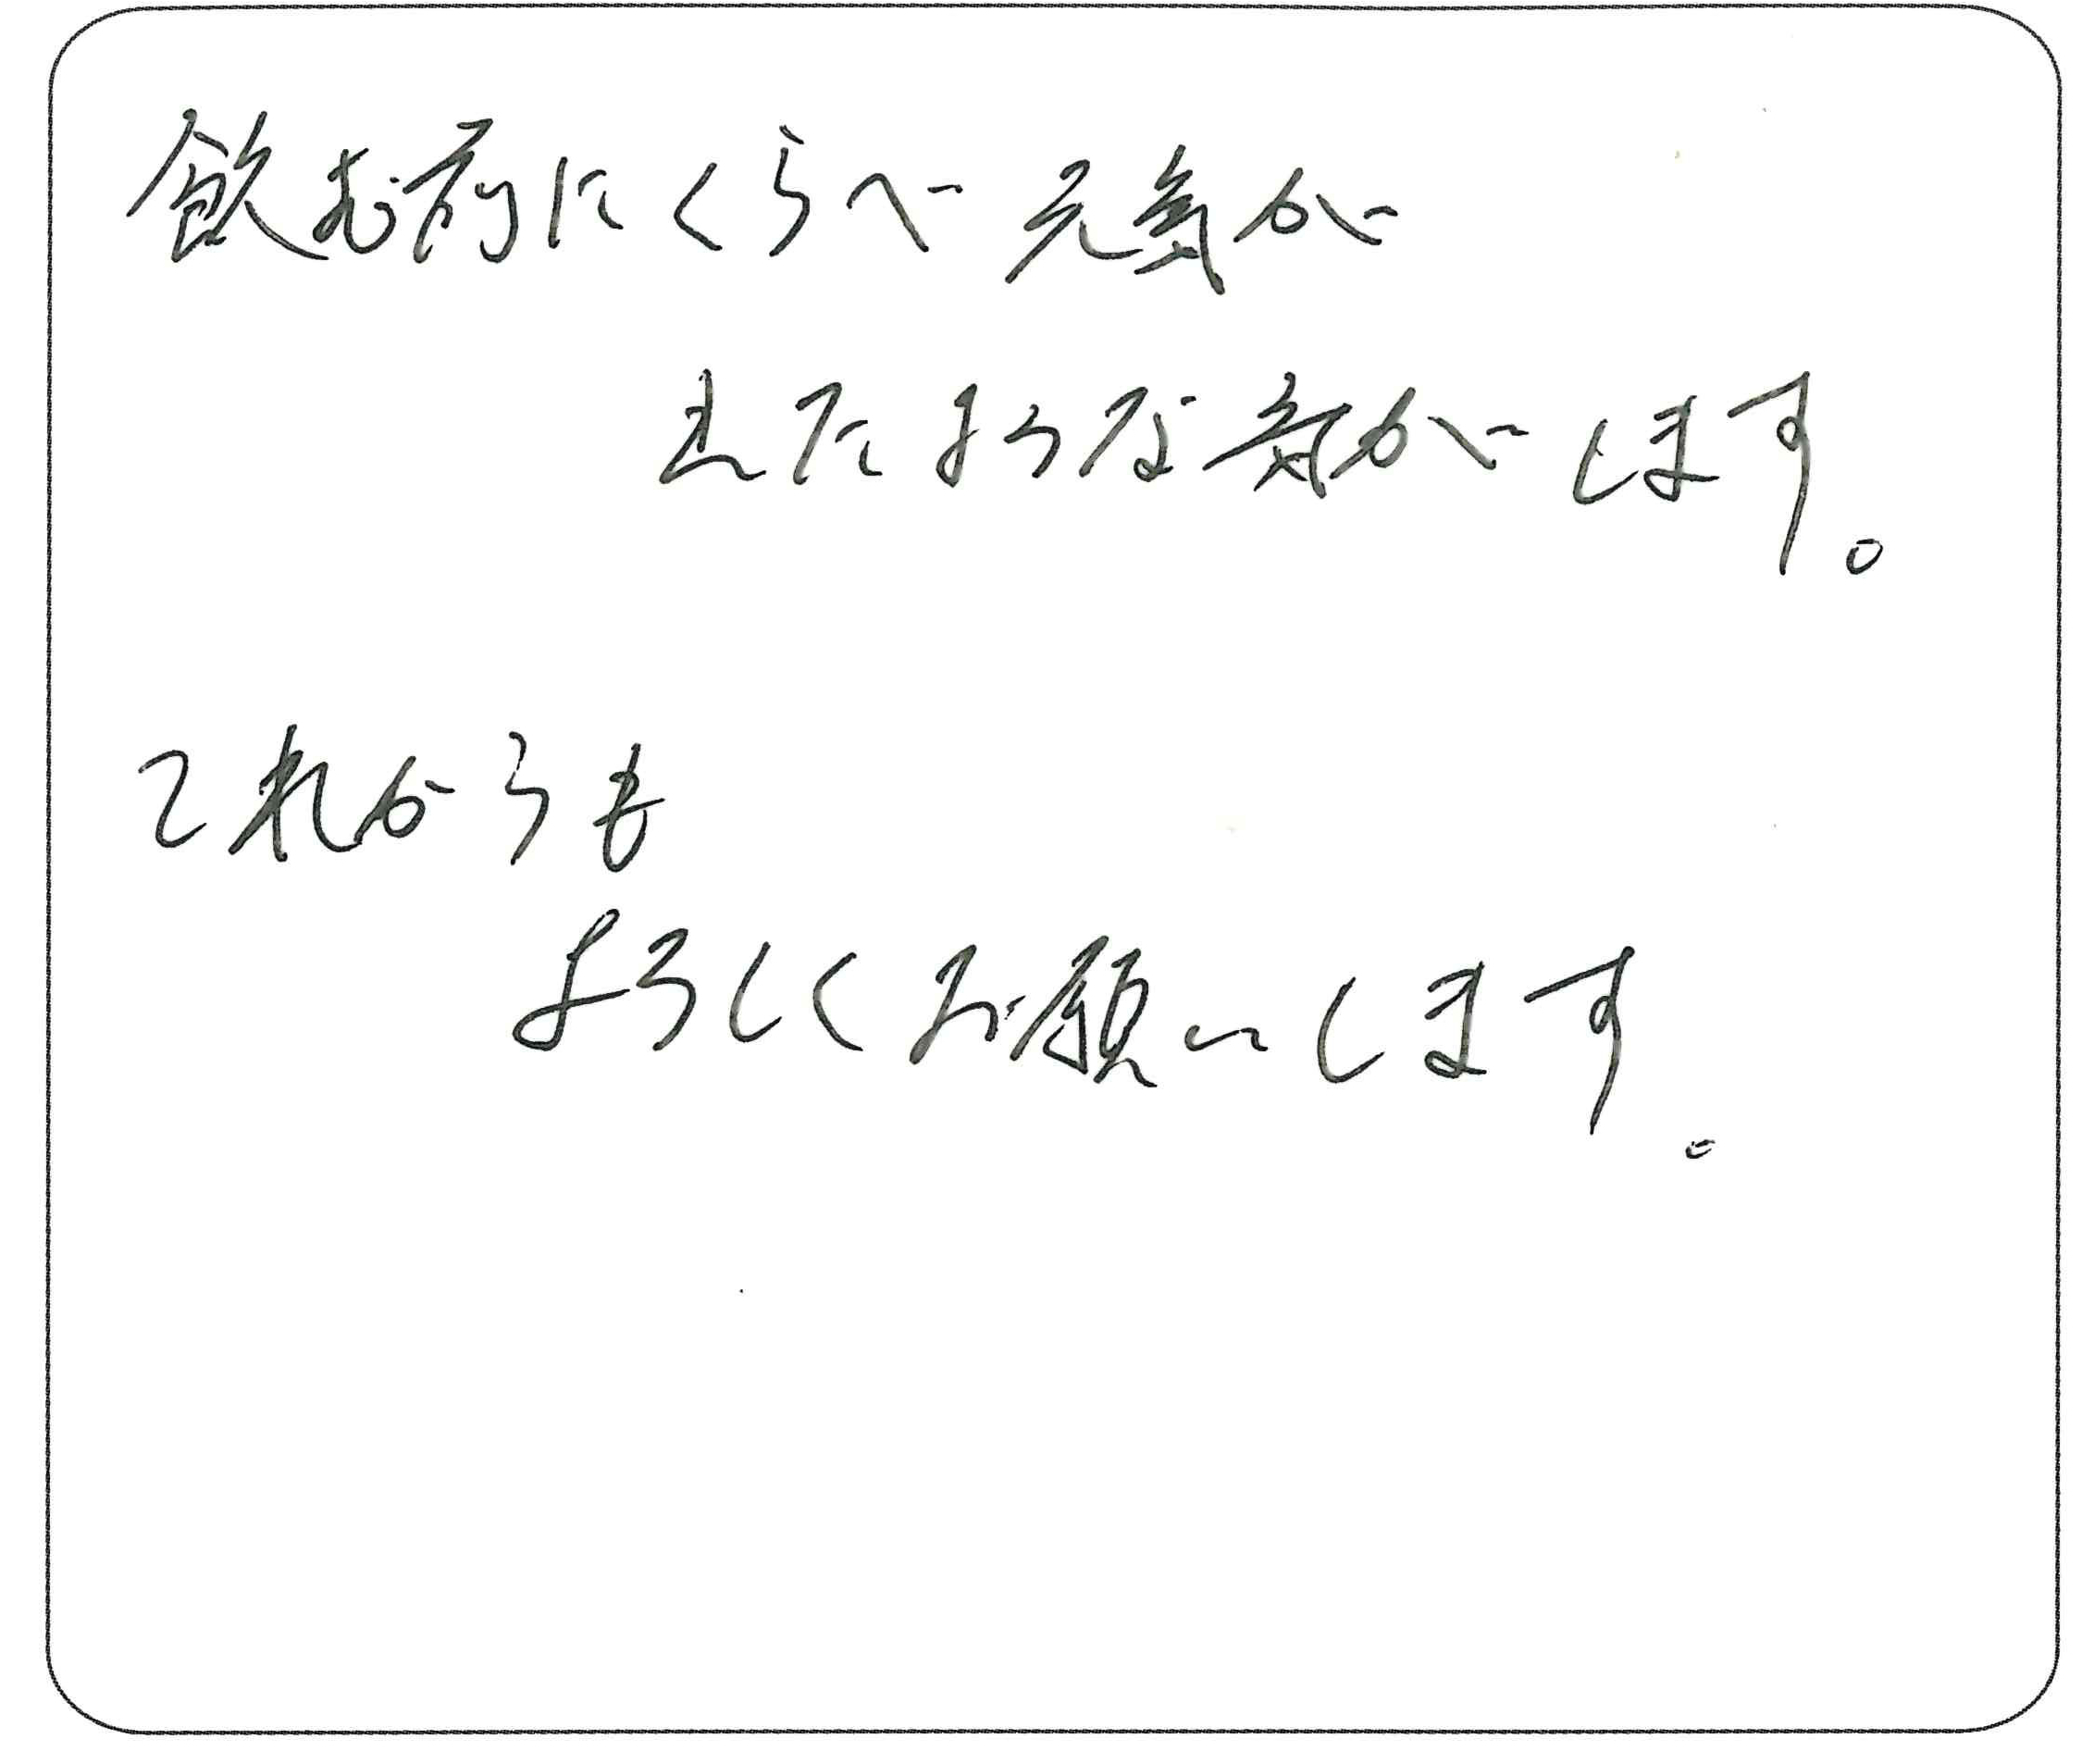 飲む前にくらべ元気が
出たような気がします。
これからも
よろしくお願いします。